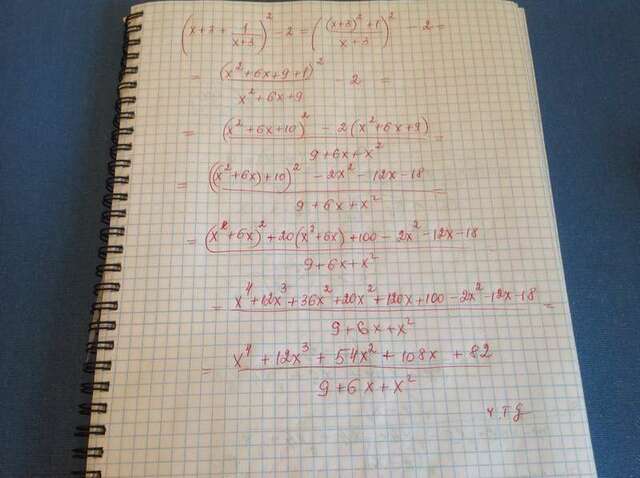 (x+3+1/(x+3))²-2=(((x+3)²+1)/(x+3))²-2=
=(x²+6x+9+1)²/(x²+6x+9)-2=
=((x²+6x+10)²-2(x²+6x+9))/(9+6x+x²)=
=(((x²+6x)+10)²-2x²-12x-18)/(9+6x+x²)=
=((x²+6x)²+20(x²+6x)+100-2x²-12x-18)/(9+6x+x²)
=(x⁴+12x³+36x²+20x²+120x+100-2x²-12x-18)/(9+6x+x²)=
=(x⁴+12x³+54x²+108x+82)/(9+6x+x²)
ч.т.д